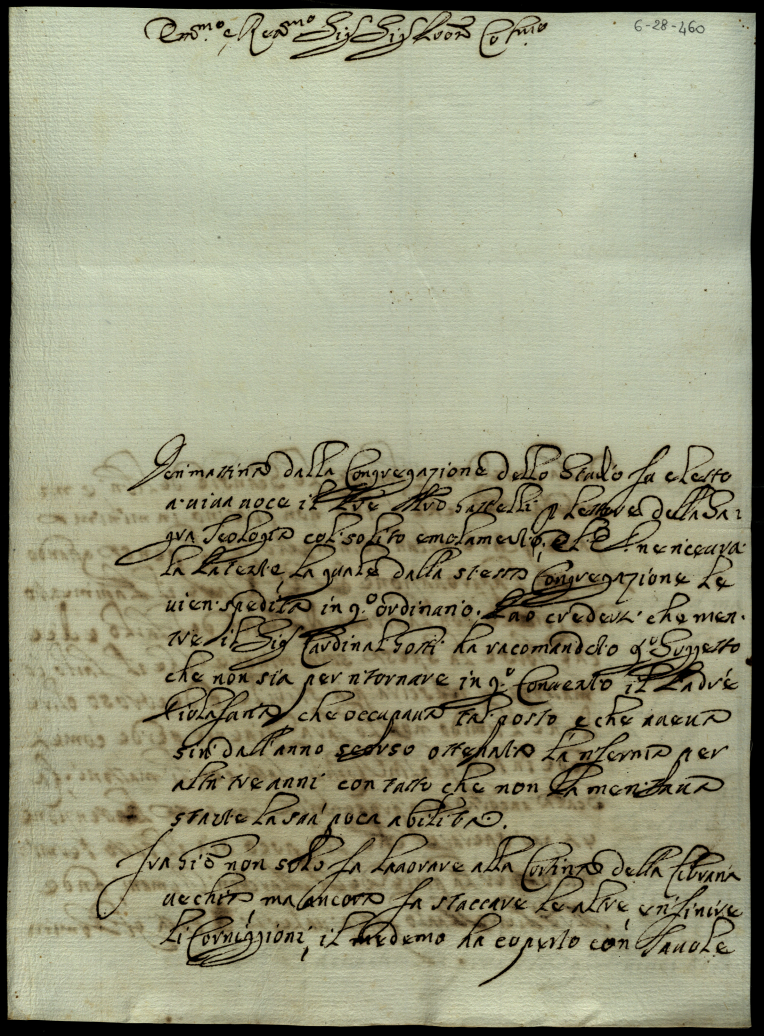 Emo. e Reumo Sig Sig Pron Colmo
6-28-460
Ieri mattina dalla Congregazione dello Studio fu eletto
a viva voce il Pre Mro Sattelli p lettore della Sa:
gra Teologia col solito emolumento, e ne riceverà
la Patente, la quale dalla stessa Congregazione le
vien spedita in qo ordinario. Può credersi che men:
tre il Sig Cardinal Conti ha racomandato qo Suggetto
che non sia per ritornare in qo Convento il Padre
che occupava tal posto e che aveva
sin dall'anno scorso ottenuta la riferma per
altri tre anni con tutto che non la meritava
stante la sua poca abilità.
Fra Gio non solo fa lavorare alla Cortina della Libraria
vechia ma ancora fa staccare le altre e rifinire
li Cornicioni, il medemo ha coperto con Tavole